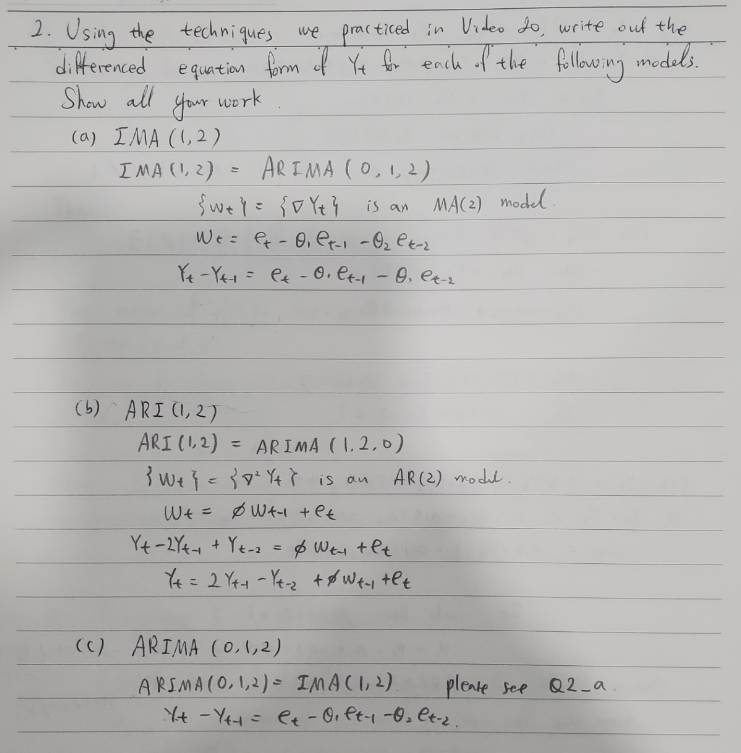 2. Using the techniques we practiced in Video 20, write out the
differenced equation form of Yt for each of the following models.
Show all your work.
(a) IMA (1,2)
IMA (1,2) = ARIMA (0,1,2)
{Wt} = {∇Yt} is an MA(2) model.
Wt = et - θ1 et-1 - θ2 et-2
Yt - Yt-1 = et - θ1 et-1 - θ1 et-2
(b) ARI (1,2)
ARI (1,2) = ARIMA (1.2.0)
{Wt} = {∇² Yt} is an AR(2) model.
Wt = ϕ Wt-1 + et
Yt - 2Yt-1 + Yt-2 = ϕ Wt-1 + et
Yt = 2 Yt-1 - Yt-2 + ϕ Wt-1 + et
(c) ARIMA (0,1,2)
ARIMA (0,1,2) = IMA (1,2) please see Q2_a.
Yt - Yt-1 = et - θ1 et-1 - θ2 et-2.